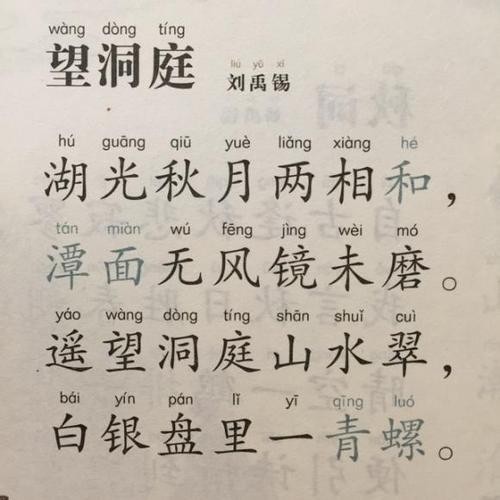 wàng dòng tíng
望洞庭
liú yǔ xī
刘禹锡
hú guāng qiū yuè liǎng xiàng hé
湖光秋月两相和，
tán miàn wú fēng jìng wèi mó
潭面无风镜未磨。
yáo wàng dòng tíng shān shuǐ cuì
遥望洞庭山水翠，
bái yín pán lǐ yī qīng luó
白银盘里一青螺。